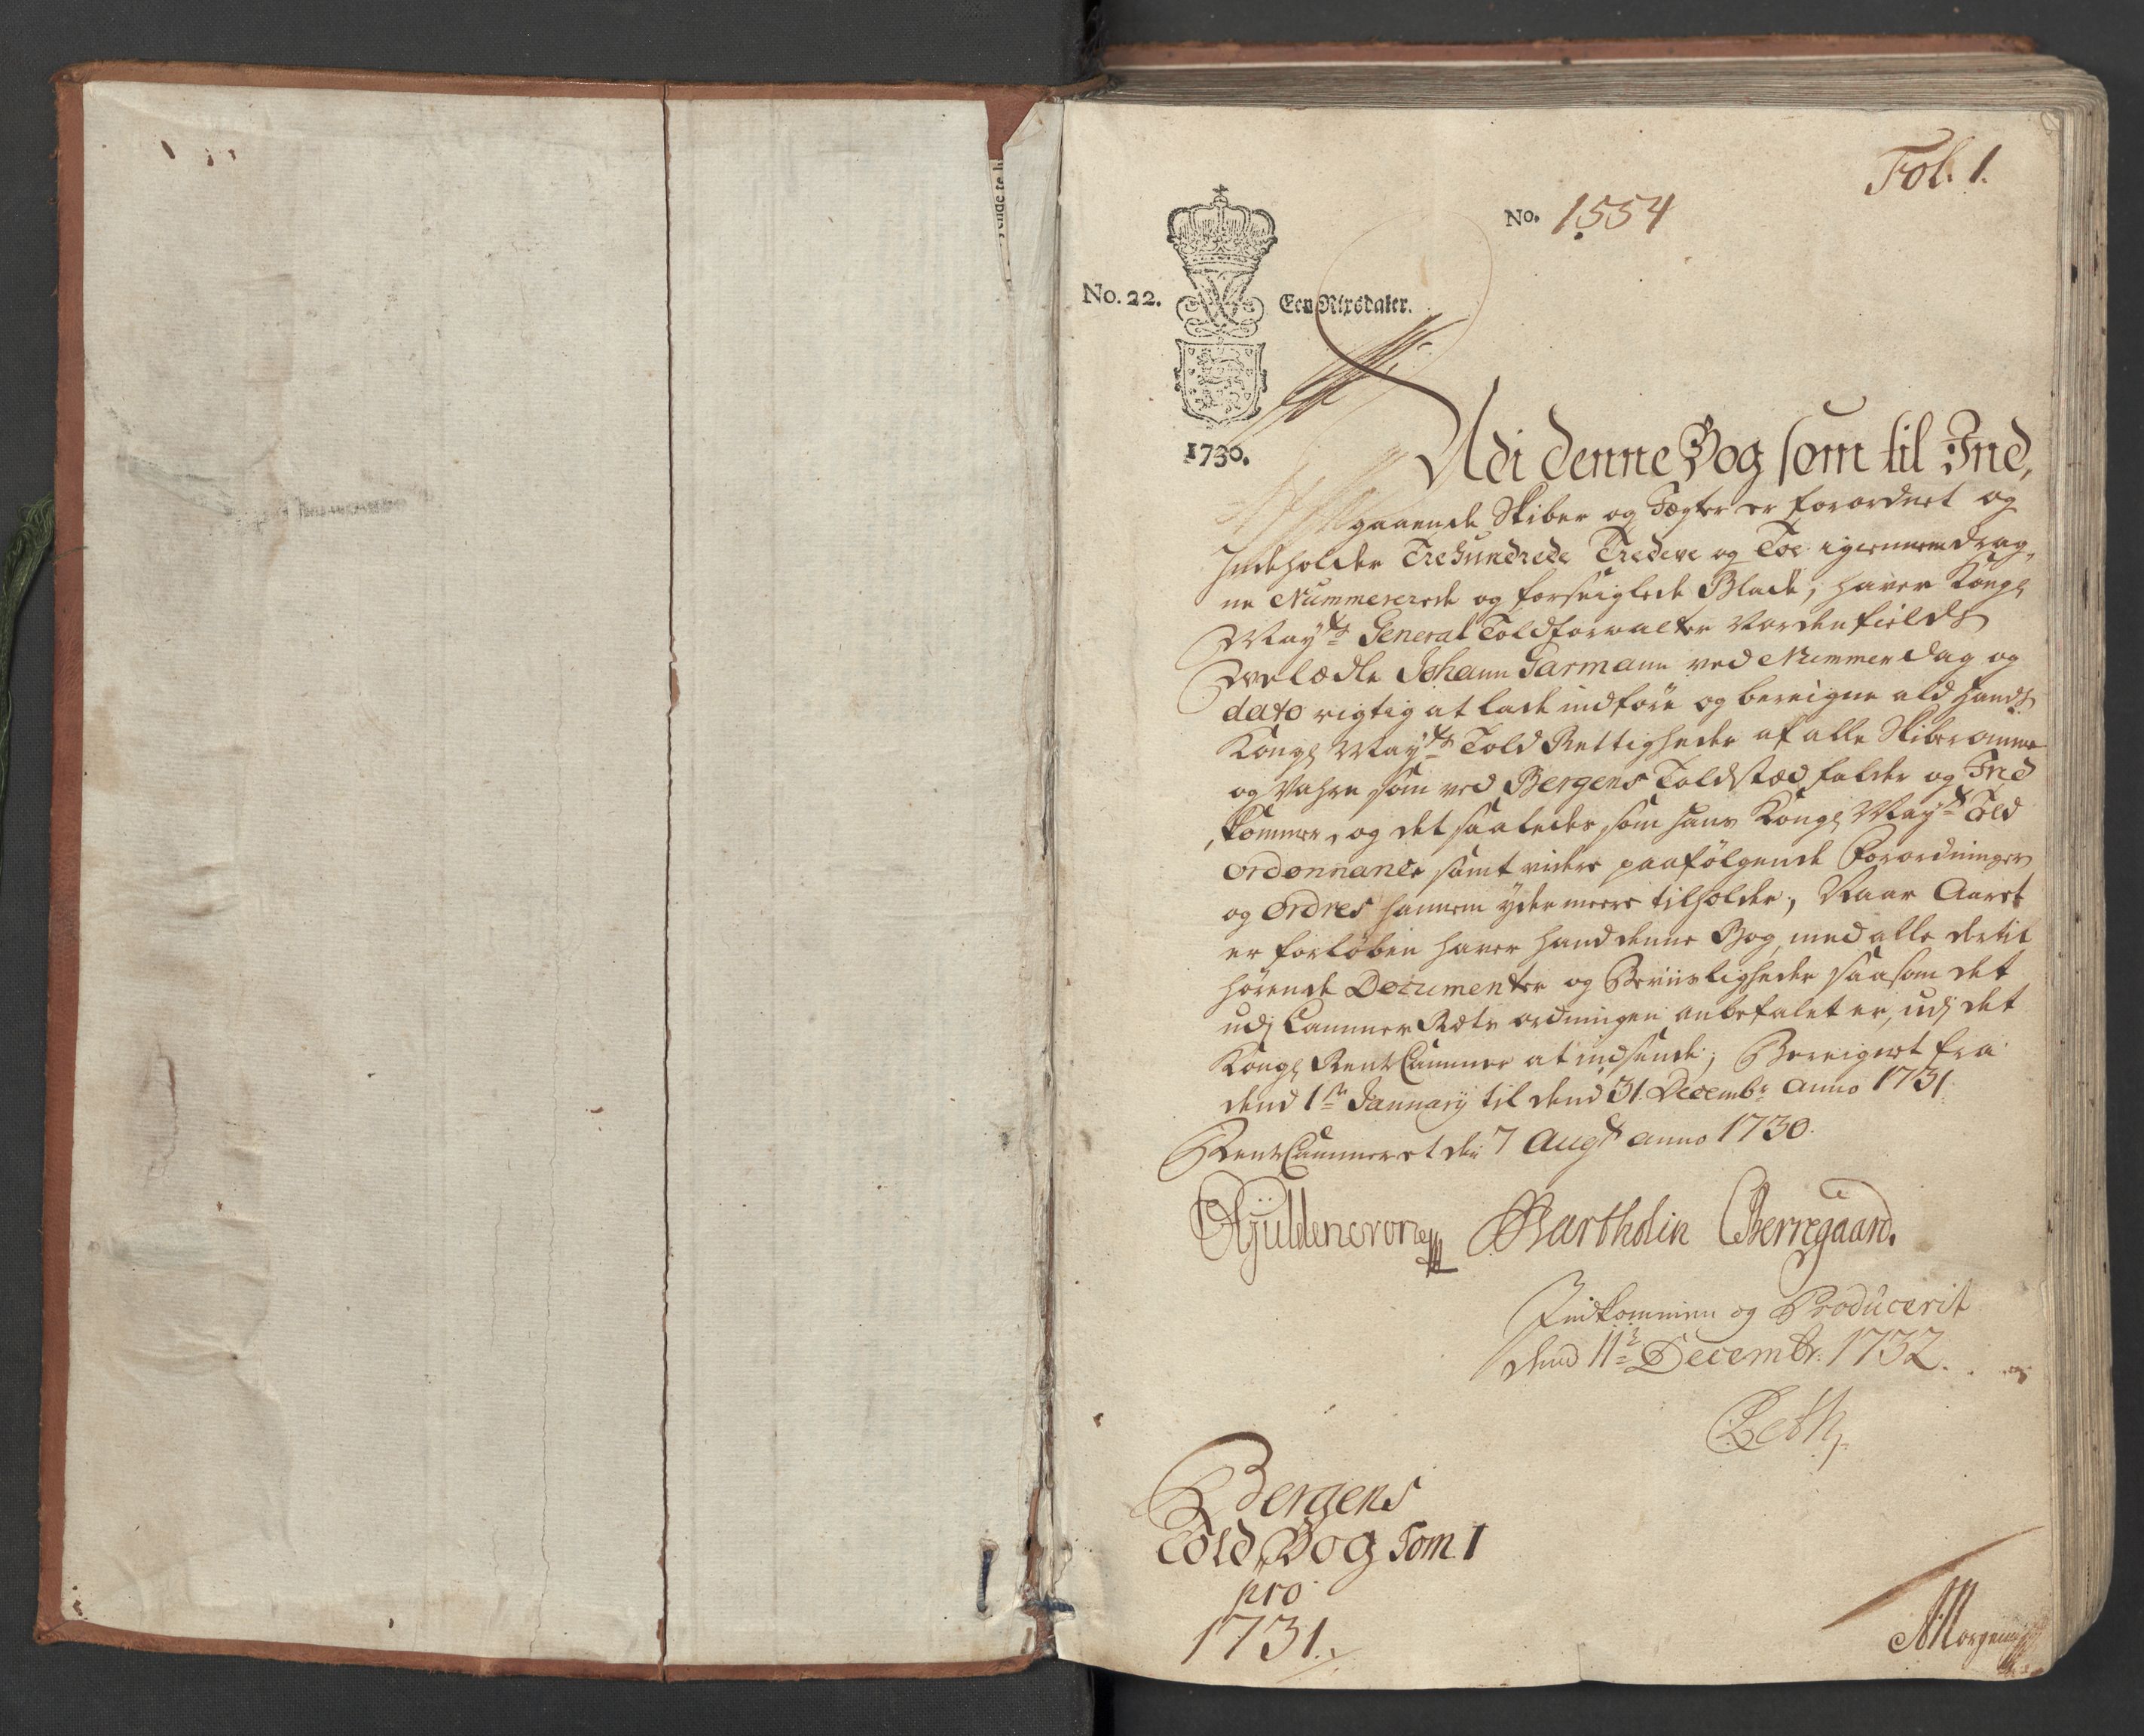 Fol. 1.
No. 1554
No. 22. Een Rixsdaler.
1730.
Udi denne Bog som til Ind,
gaaende Skiber og Fartøyer er forordnet og
Indeholder Trehundrede Tredeve og Toe igiennemdrag,
ne Nummererede og forseiglede Blade, haver Kongl
Mayts General Toldforvalter Nordenfields
Velædle Johann Garmann ved Nummer dag og
dato rigtig at lade indføre og bereigne ald hands
Kongl Mayts Told Rettigheder af alle Skiberomme
og Vahre som ved Bergens Toldstæd falder og Ind
kommer, og det saaledes som hans Kongl Mayts Told
ordonnance samt videre paafølgende Forordninger
og ordres hannem ydermeere tilholder, Naar Aaret
er forløben haver hand denne Bog, med alle dertil
hørende Documenter og Beviisligheder saasom det
udj Cammer Rætz ordningen anbefalet er, udj det
Kongl RenteCammer at indsende; Bereignet fra
dend 1ste January til dend 31. Decembr Anno 1731.
RenteCammeret den 7 Augst anno 1730.
Gyldencrone Bartholin Berregaard.
Indkommen og Producerit
dend 11te Decembr. 1732.
Leth
Bergens
Told Bog Tom. 1
pro
1731.